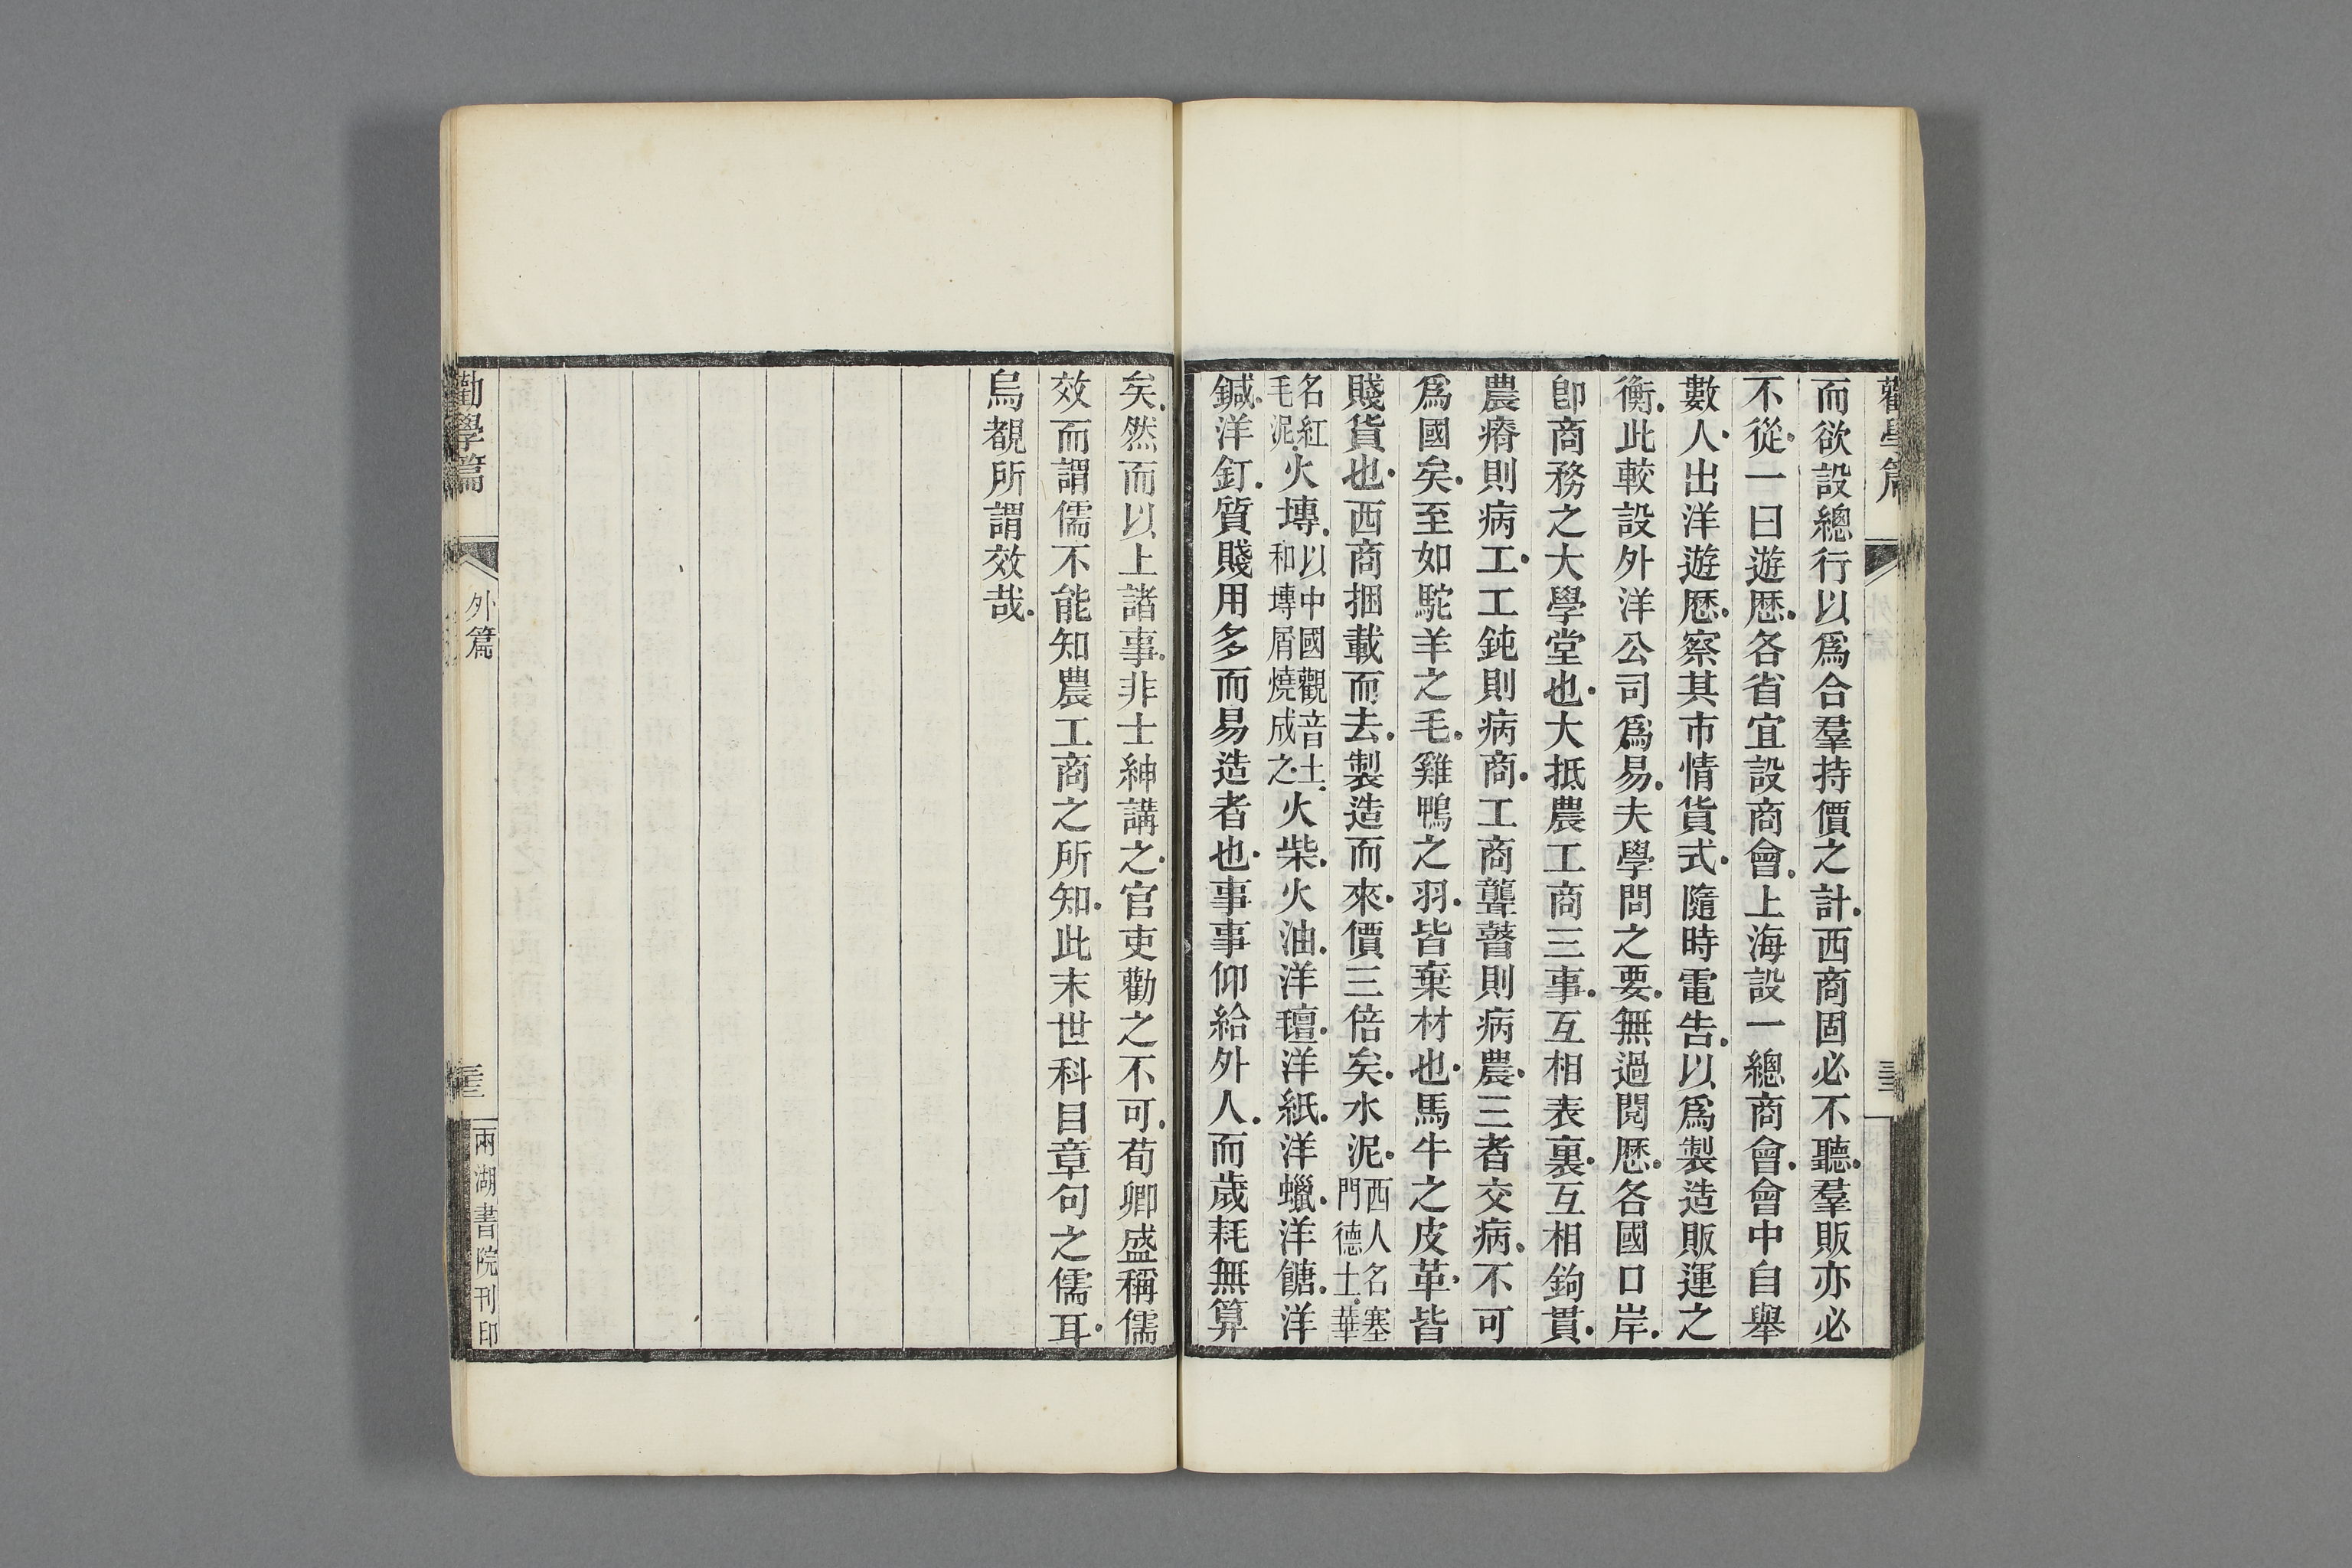 勸學篇
而欲設總行以爲合羣持價之計西商固必不聽羣販亦必
不從一曰遊歷各省宜設商會上海設一總商會會中自舉
數人出洋遊歷察其市情貨式隨時電告以爲製造販運之
衡此較設外洋公司爲易夫學問之要無過閱歷各國口岸
卽商務之大學堂也大抵農工商三事互相表裏互相鉤貫
農瘠則病工工鈍則病商工商聾瞽則病農三者交病不可
爲國矣至如駝羊之毛雞鴨之羽皆棄材也馬牛之皮革皆
賤貨也西商捆載而去製造而來價三倍矣水泥西人名塞門德土華
名紅毛泥火塼以中國觀音土和塼屑燒成之火柴火油洋氊洋紙洋蠟洋餹洋
鍼洋釘質賤用多而易造者也事事仰給外人而歲耗無算
矣然而以上諸事非士紳講之官吏勸之不可荀卿盛稱儒
效而謂儒不能知農工商之所知此末世科目章句之儒耳
烏覩所謂效哉
勸學篇
外篇
兩湖書院刊印